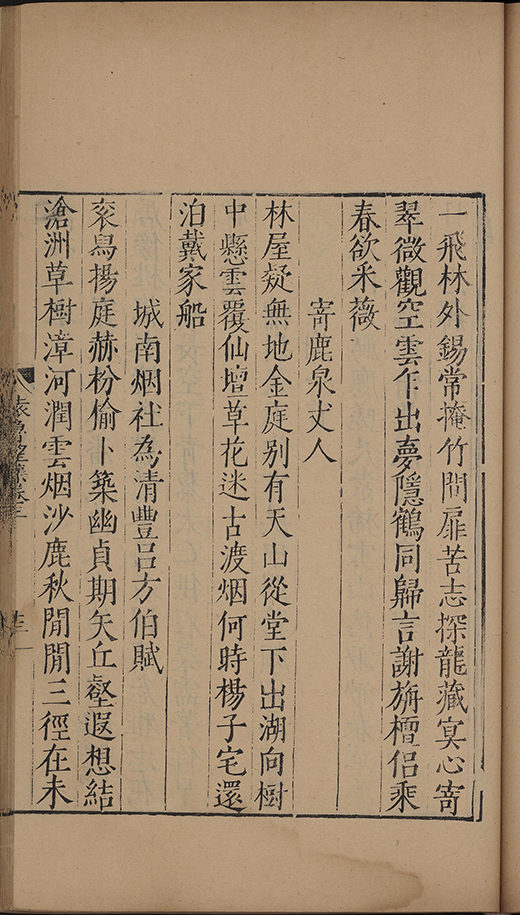 一飛林外錫常掩竹間扉苦志探龍藏㝠心寄
翠微觀空雲乍出夢隱鶴同歸言謝旃檀侣乘
春欲采薇
寄鹿泉丈人
林屋疑無地金庭别有天山從堂下出湖向樹
中懸雲覆仙壇草花迷古渡烟何時楊子宅還
泊戴家船
城南烟社為清豐吕方伯賦
衮舄揚庭赫枌偷卜築幽貞期矢丘壑遐想結
滄洲草樹漳河潤雲烟沙鹿秋閒閒三徑在未